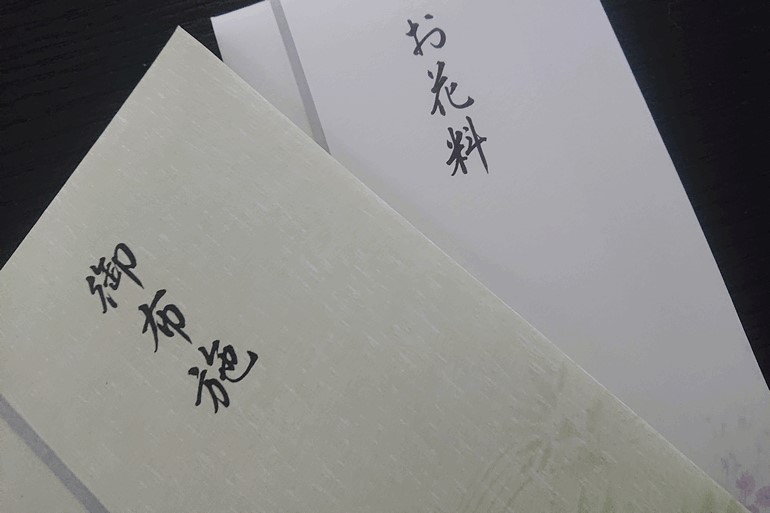 お花料
御布施